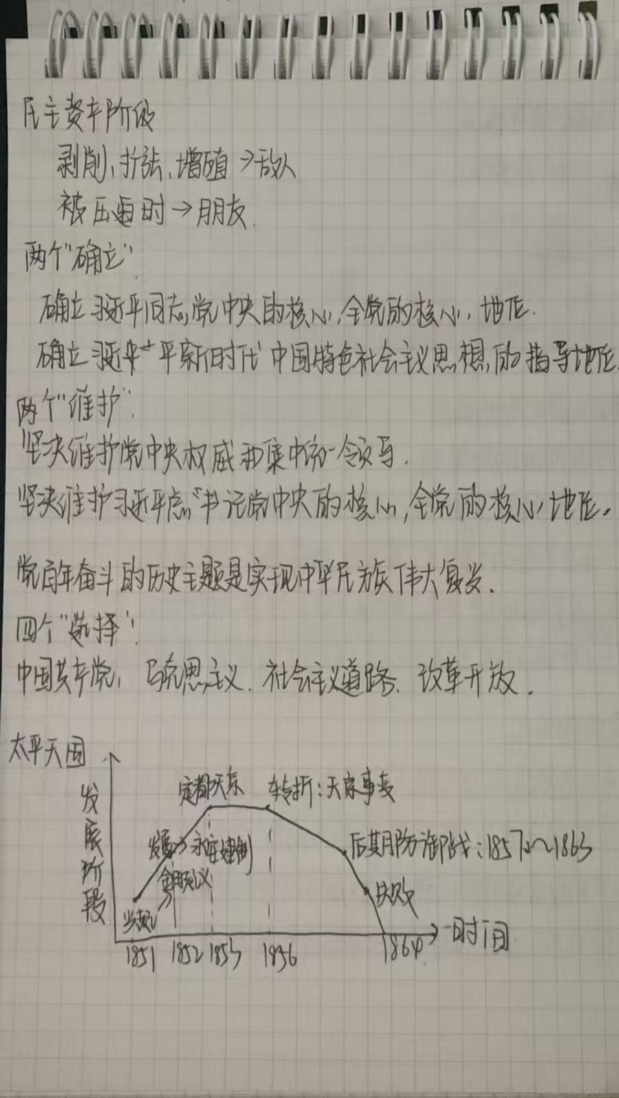 民主资本阶级
剥削,扩张,增殖→敌人
被压迫时→朋友.
两个"确立"
确立习近平同志党中央的核心,全党的核心,地位.
确立习近平新时代中国特色社会主义思想,的指导地位.
两个"维护":
坚决维护党中央权威和集中统一领导.
坚决维护习近平总书记党中央的核心,全党的核心,地位.
党百年奋斗的历史主题是实现中华民族伟大复兴.
四个"选择":
中国共产党, 马克思主义. 社会主义道路. 改革开放.
太平天国
定都天京 转折:天京事变
发展阶段
永安建制
后期防御战:1857~1863
金田起义
失败
时间
1851 1852 1853 1856 1864